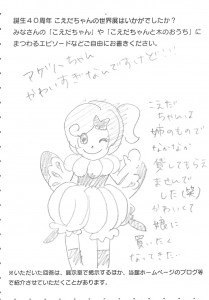 誕生40周年 こえだちゃんの世界展はいかがでしたか？
みなさんの「こえだちゃん」や「こえだちゃんと木のおうち」に
まつわるエピソードなどご自由にお書きください。
アゲリーちゃん
かわいすぎなんですけど…
こえだ
ちゃんは
姉のもので
なかなか
貸してもらえ
ませんで
した(笑)
かわいくて
娘に
買いたく
なってきた…
※いただいた回答は、展示室で掲示するほか、当館ホームページのブログ等
で紹介させていただくことがあります。